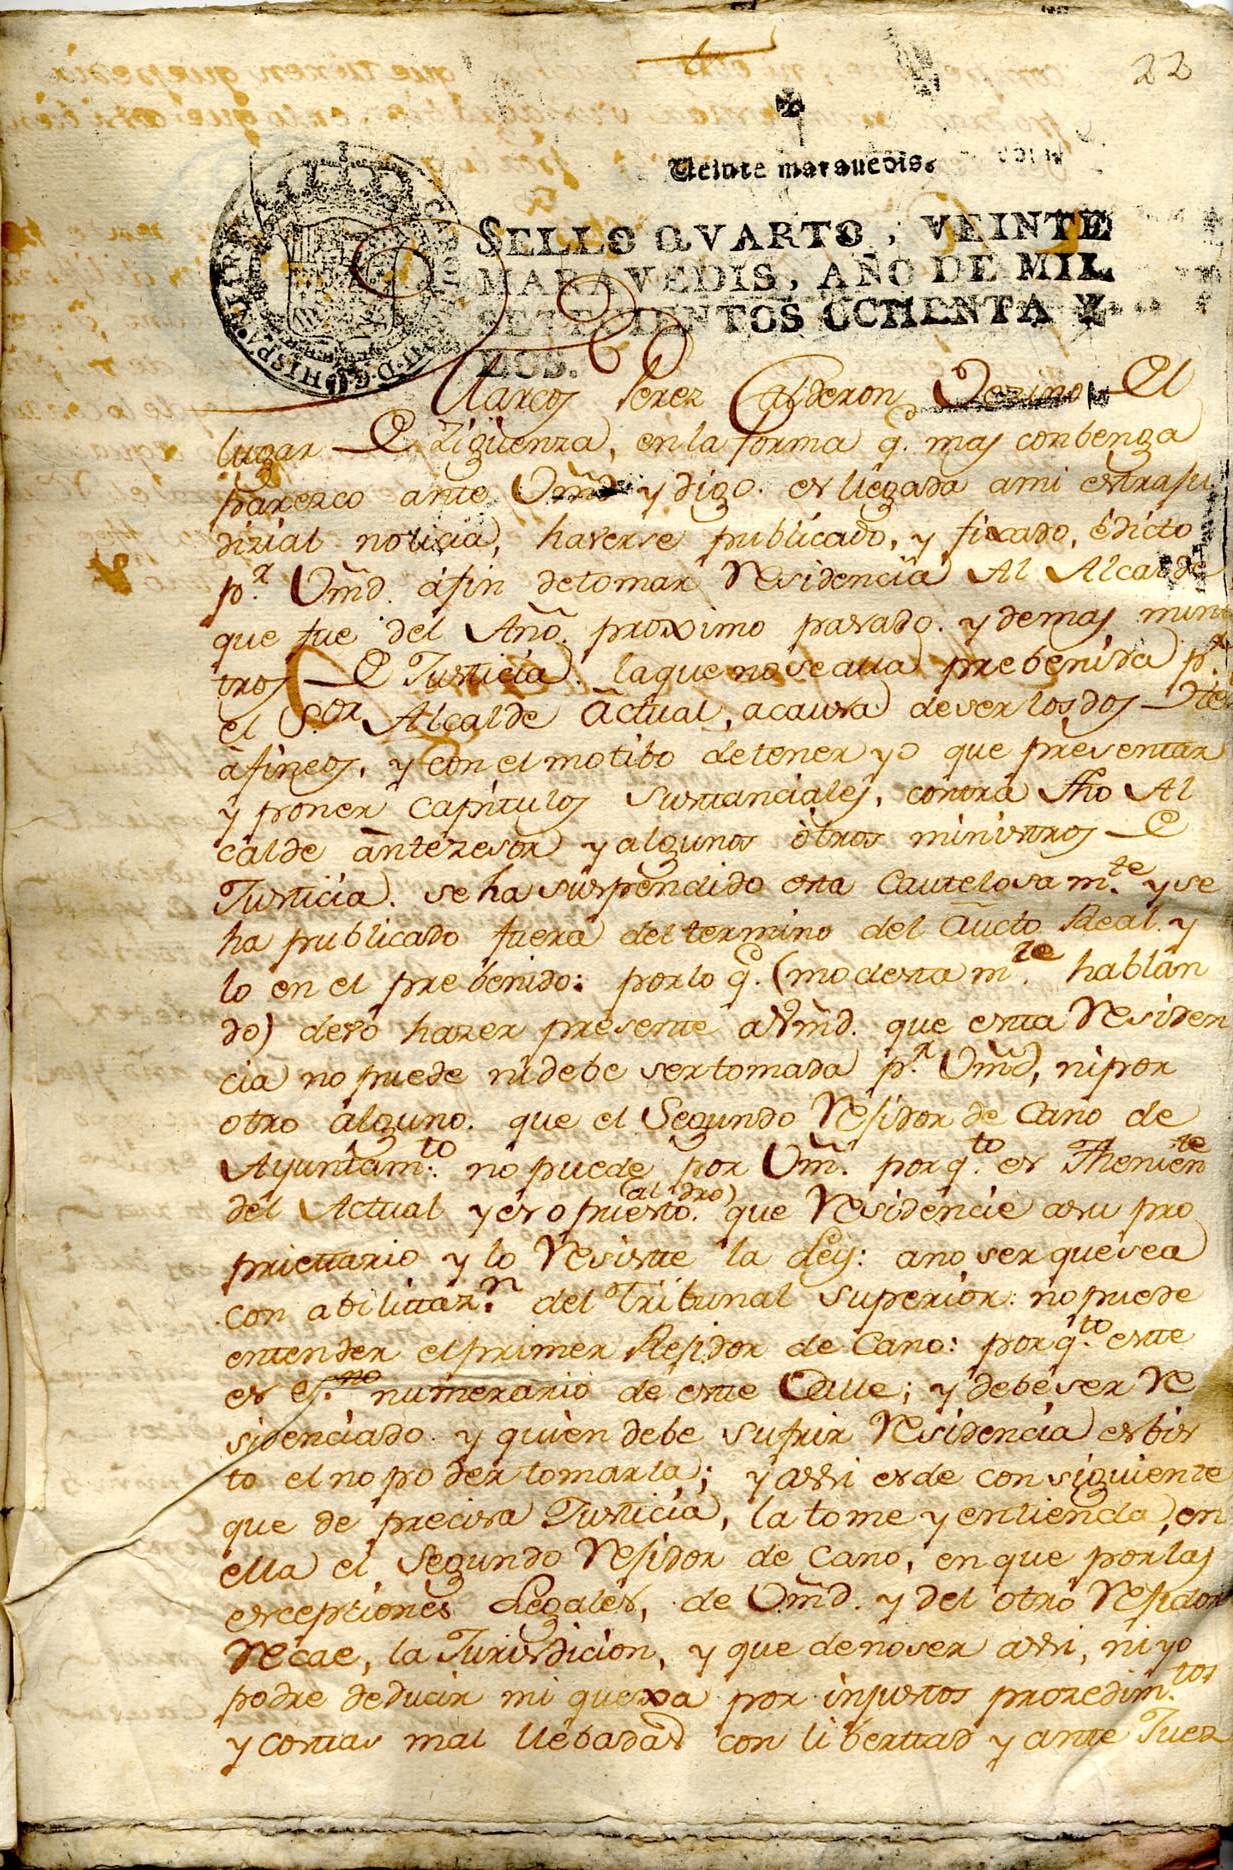 22
Veinte maravedis.
SELLO QVARTO, VEINTE
MARAVEDIS, AÑO DE MIL
SETECIENTOS OCHENTA Y
DOS.
HISPA
Marcos Perez Calderon Vezino del
lugar de Zigüenza, en la forma q.e mas conbenga
parezco ante Vmd y digo. es llegada ami extraju
dizial noticia, haverse publicado, y fixado, edicto
p.r Vmd. áfin detomar Residencia Al Alcalde
que fue del Año. proximo pasado. y demas minis
tros de Justicia. laque nose alla prebenida p.r
el S.or Alcalde Actual, acausa deser los dos
áfines, y con el motibo detener yo que presentar
y poner capitulos sustanciales, contra dho Al
calde antezesor y algunos otros ministros de
Justicia. se ha suspendido esta Cautelosam.te y se
ha publicado fuera deltermino del Aucto Real. y
lo en el prebenido: porlo q.e (modestam.te hablan
do) devo hazer presente aVmd. que esta Residen
cia no puede nidebe sertomada p.r Vmd, nipor
otro alguno. que el Segundo Residor de Cano de
Ayuntam.to no puede por Vm. porq.to es Thenien.te
del Actual y es opuesto. (al dro) que Residencie asu pro
priettario y lo Resiste la Ley: ano ser quesea
con abilittaz.n del Tribunal Superior: no puede
entender elprimer Residor de Cano: porq.to este
es es.no numerario de este Valle; y debeser Re
sidenciado. y quien debe sufrir Residencia es vis
to el no poder tomarla; y assi esde consiguiente
que de precisa Justicia, la tome y entienda, en
ella el Segundo Residor de Cano, en que por las
exceptiones Legales, de Vmd. y del otro Residor
Recae, la Jurisdicion, y que denoser assi, ni yo
podre deducir mi quexa por injustos prozedim.tos
y contas mal llebadas con liberttad y ante Juez